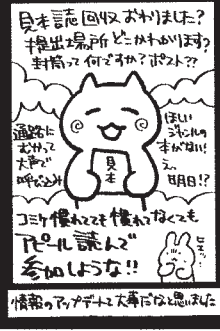 見本誌回収おわりました?
提出場所どこかわかります?
封筒って何ですか?ポスト??
通路に
むかって
大声で
呼び込み
ほしい
ジャンルの
本がない!
え、
明日!?
見本
コミケ慣れてても慣れてなくても
アピール読んで
参加しような!!
ヒエッ…
情報のアップデートって大事だなと思いました